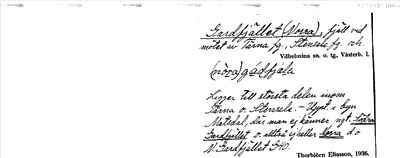 Gardfjället (Norra), fjäll vid
mötet av Tärna sg., Stensele sg. och
Vilhelmina sn. o. tg., Västerb. l.
(nòra) gádfjäla
Ligger till största delen inom
Tärna o. Stensele. - Uppt. i byn
Matsdal, där man ej känner ngt. Södra
Gardfjället o. alltså ej heller Norra d:o
N Gardfjället GKO.
Thorbjörn Eliasson, 1936.